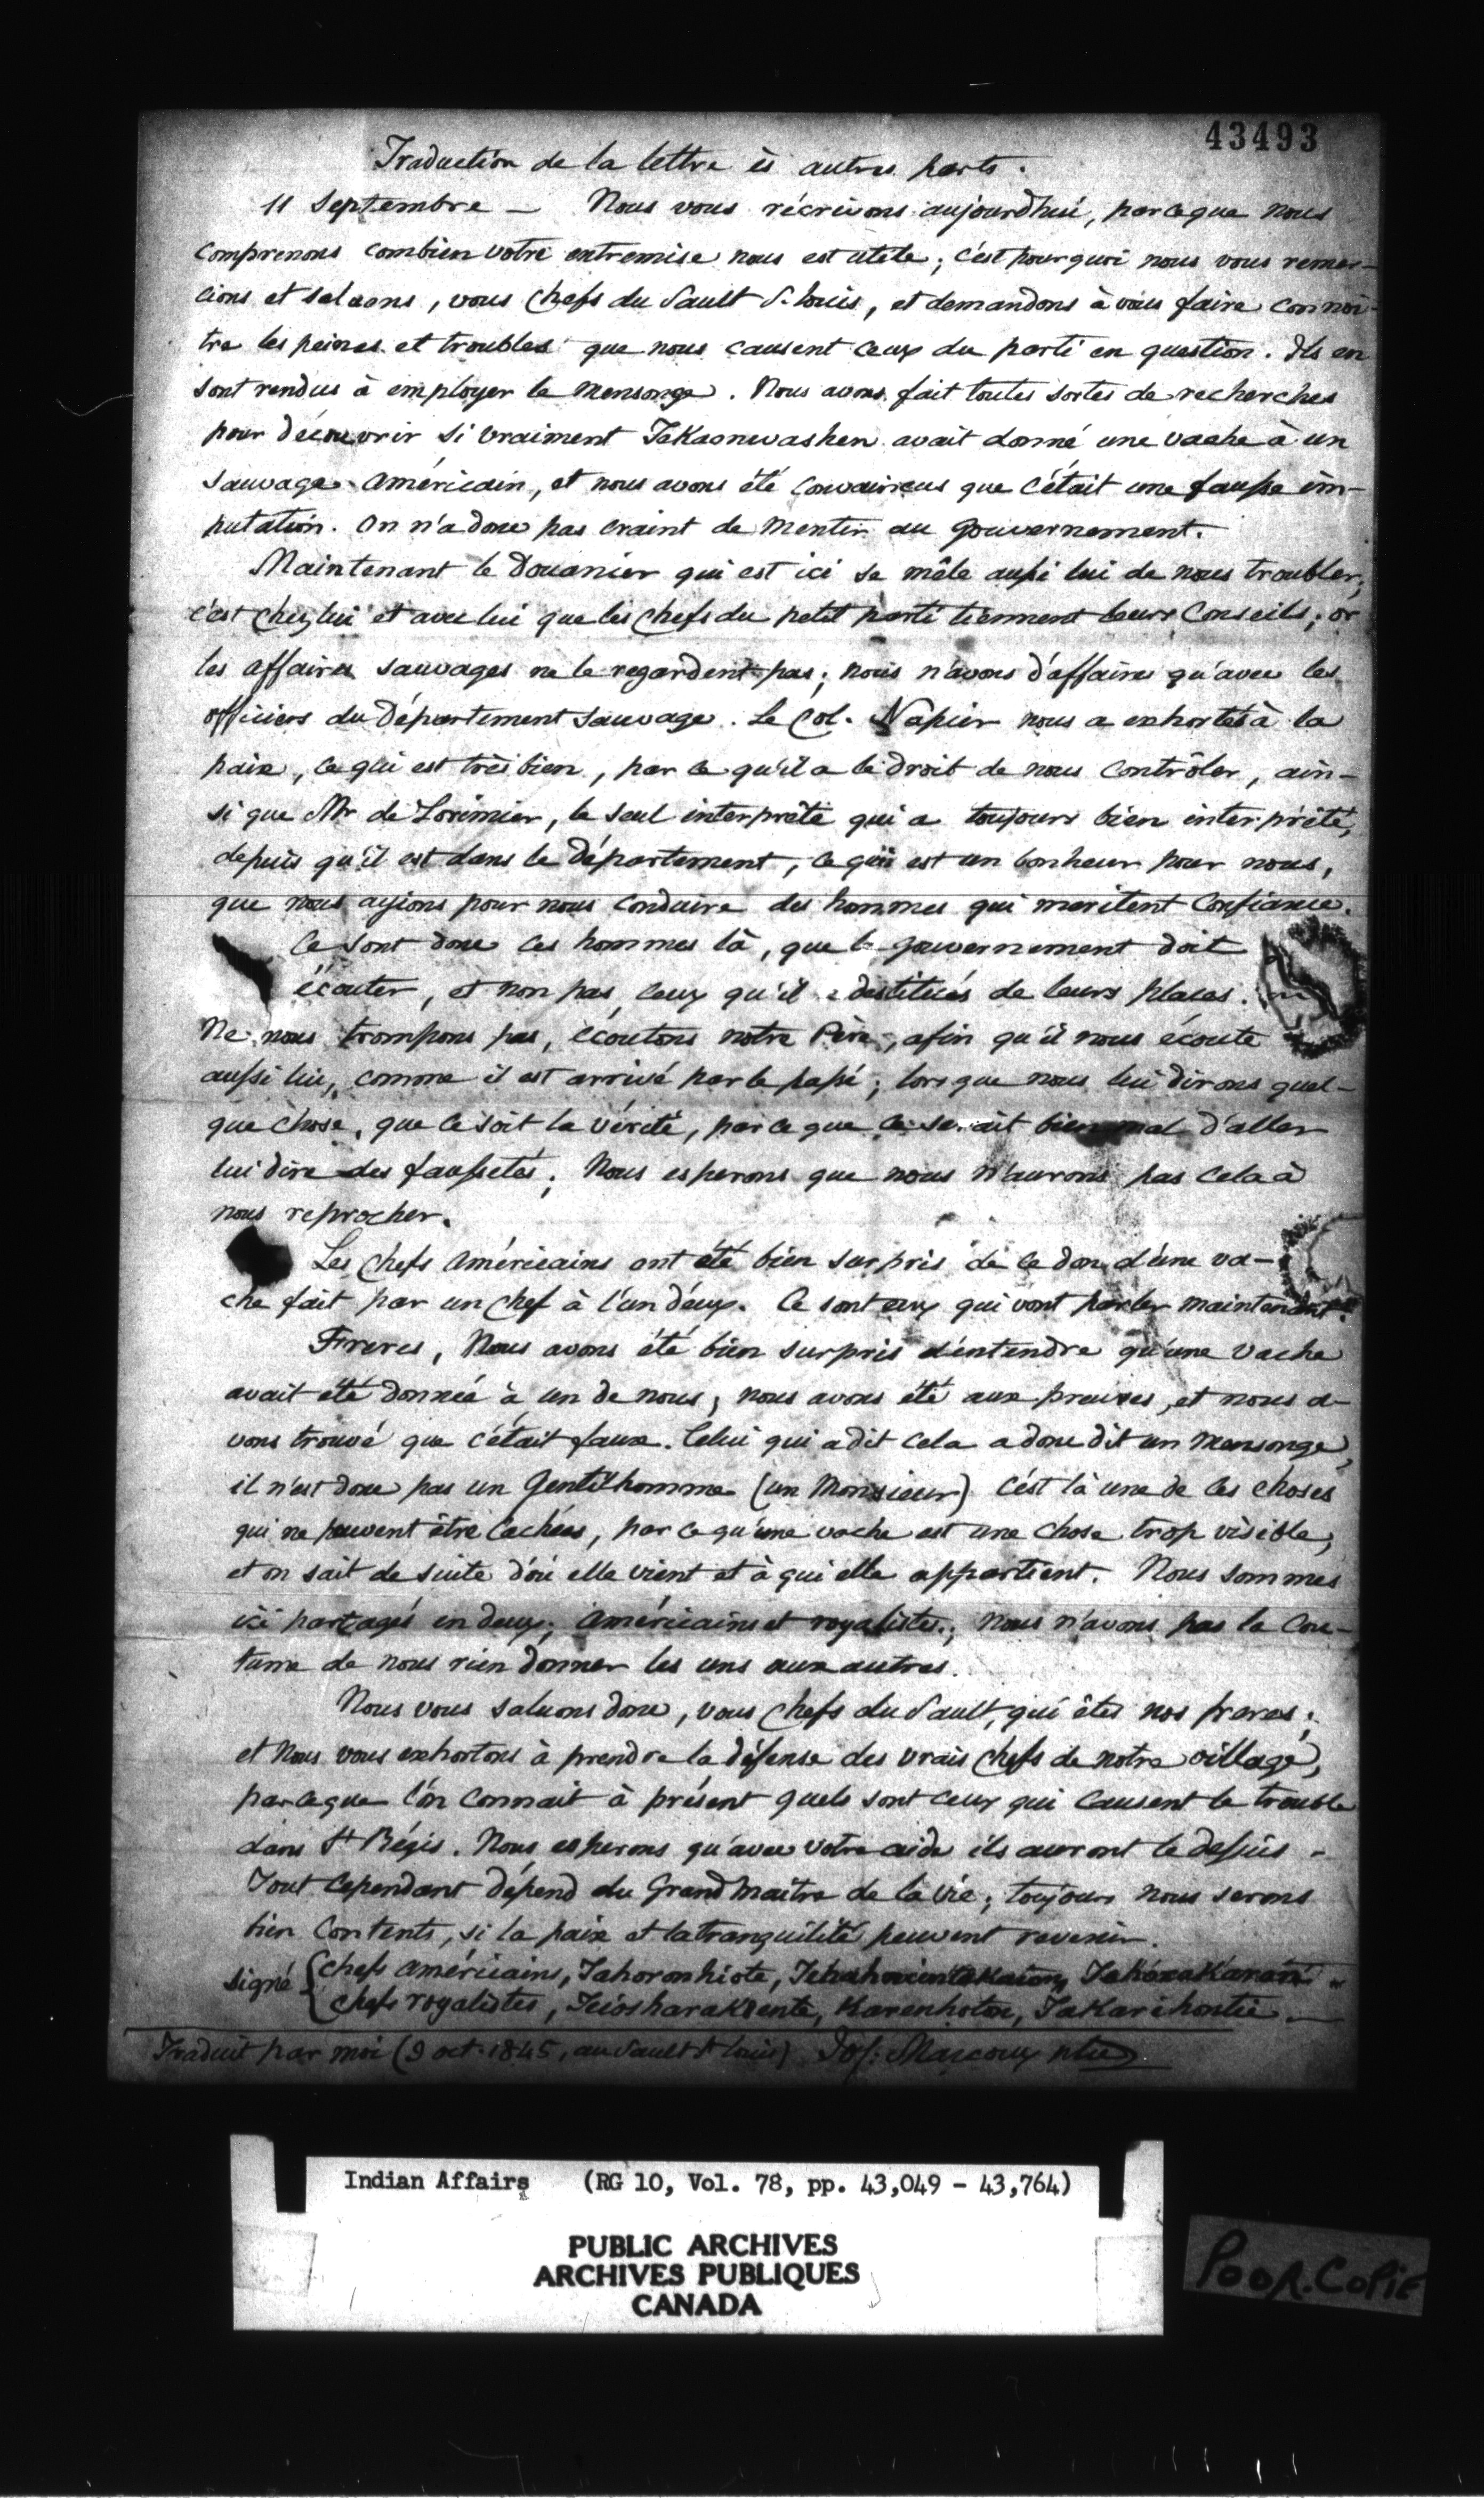 43493
Traduction de la lettre ès autres parts.
11 Septembre — Nous vous récrivons aujourdhui, parceque nous
comprenons combien votre entremise nous est utile; c'est pourquoi nous vous remer-
cions et saluons, vous chefs du Sault S. Louis, et demandons à vous faire connoi-
tre les peines et troubles que nous causent ceux du parti en question. Ils en
sont rendus à employer le mensonge. Nous avons fait toutes sortes de recherches
pour découvrir si vraiment avait donné une vache à un
sauvage américain, et nous avons été convaincus que c'était une fausse im-
putation. On n'a donc pas craint de mentir au gouvernement.
Maintenant le Douanier qui est ici se mêle aussi lui de nous troubler;
c'est chez lui et avec lui que les chefs du petit parti tiennent leurs Conseils; or
les affaires sauvages ne le regardent pas; nous n'avons d'affaires qu'avec les
officiers du Département Sauvage. Le Col. Napier nous a exhortés à la
paix, ce qui est très bien, par ce qu'il a le droit de nous contrôler, ain-
si que Mr de Lorimier, le seul interprète qui a toujours bien interprété,
depuis qu'il est dans le Département, ce qui est un bonheur pour nous,
que nous ayions pour nous conduire des hommes qui meritent confiance.
Ce sont donc ces hommes là, que le gouvernement doit
écouter, et non pas ceux qu'il a destitués de leurs places.
Ne nous trompons pas, écoutons notre Père, afin qu'il nous écoute
aussi lui, comme il est arrivé par le passé; lorsque nous lui dirons quel-
que chose, que ce soit la vérité, par ce que ce serait bien mal d'aller
lui dire des faussetés; Nous esperons que nous n'aurons pas cela à
nous reprocher.
Les chefs américains ont été bien surpris de ce don d'une va-
che fait par un chef à l'un d'eux. Ce sont eux qui vont parler maintenant.
Freres, Nous avons été bien surpris d'entendre qu'une vache
avait été donnée à un de nous; nous avons été aux preuves, et nous a-
vons trouvé que c'était faux. Celui qui a dit cela a donc dit un mensonge,
il n'est donc pas un Gentilhomme (un Monsieur) c'est là une de ces choses
qui ne peuvent être cachées, par ce qu'une vache est une chose trop visible,
et on sait de suite d'où elle vient et à qui elle appartient. Nous sommes
ici partagés en deux; américains et royalistes; nous n'avons pas la cou-
tume de nous rien donner les uns aux autres.
Nous vous saluons donc, vous chefs du Sault, qui êtes nos freres;
et nous vous exhortons à prendre la défense des vrais chefs de notre village,
parceque l'on connait à présent quels sont ceux qui causent le trouble
dans St Régis. Nous esperons qu'avec votre aide ils auront le dessus -
Tout cependant dépend du Grand Maître de la vie; toujours nous serons
bien contents, si la paix et la tranquilité peuvent revenir.
signé { chefs américains, Tahoronhiote,
chefs royalistes, Karenhoton, Takarihontie.
Traduit par moi (9 oct. 1845, au Sault St Louis) Jos: Marcoux ptre
Indian Affairs (RG 10, Vol. 78, pp. 43,049 - 43,764)
PUBLIC ARCHIVES
ARCHIVES PUBLIQUES
CANADA
POOR.COPIE